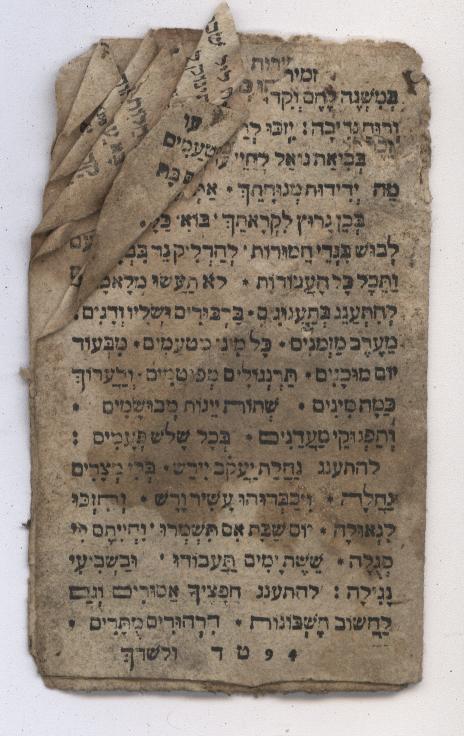 זמירות
בְּמִשְׁנֶה לֶחֶם וְקִד
וְרוּחַ נְדִיבָה: יִזְכּוּ לְרַ
בְּבִיאַת גּוֹאֵל לְחַיֵּי
מַה יְדִידוּת מְנוּחָתֵךְ • אַתְּ
בְּכֵן נָרוּץ לִקְרָאתֵךְ • בּוֹאִי כַ
לְבוּשׁ בִּגְדֵי חֲמוּדוֹת • לְהַדְלִיק נֵר בִּ
וַתֵּכֶל כָּל הָעֲבוֹדוֹת • לֹא תַעֲשׂוּ מְלָאכָ
לְהִתְעַנֵּג בְּתַעֲנוּגִים • בַּרְבּוּרִים וּשְׂלָיו וְדָגִים:
מֵעֶרֶב מַזְמִנִים • כָּל מִינֵי מַטְעַמִּים • מִבְּעוֹד
יוֹם מוּכָנִים • תַּרְנְגוֹלִים מְפוּטָּמִים • וְלַעֲרוֹךְ
כַּמָּה מִינִים • שְׁתוֹת יֵינוֹת מְבוּשָּׂמִים •
וְתַפְנוּקֵי מַעֲדַנִּים • בְּכָל שָׁלֹשׁ פְּעָמִים :
להתענג נַחֲלַת יַעֲקֹב יִירָשׁ • בְּלִי מְצָרִים
נַחֲלָה • וִיכַבְּדוּהוּ עָשִׁיר וָרָשׁ • וְתִזְכּוּ
לִגְאוּלָּה • יוֹם שַׁבָּת אִם תִּשְׁמֹרוּ • וִהְיִיתֶם לִי
סְגֻלָּה • שֵׁשֶׁת יָמִים תַּעֲבוֹדוּ • וּבַשְּׁבִיעִי
נָגִילָה : להתענג חֲפָצֶיךָ אֲסוּרִים וְגַם
לַחֲשׁוֹב חֶשְׁבּוֹנוֹת • הִרְהוּרִים מֻתָּרִים •
ד ט 9 4 ולשדך